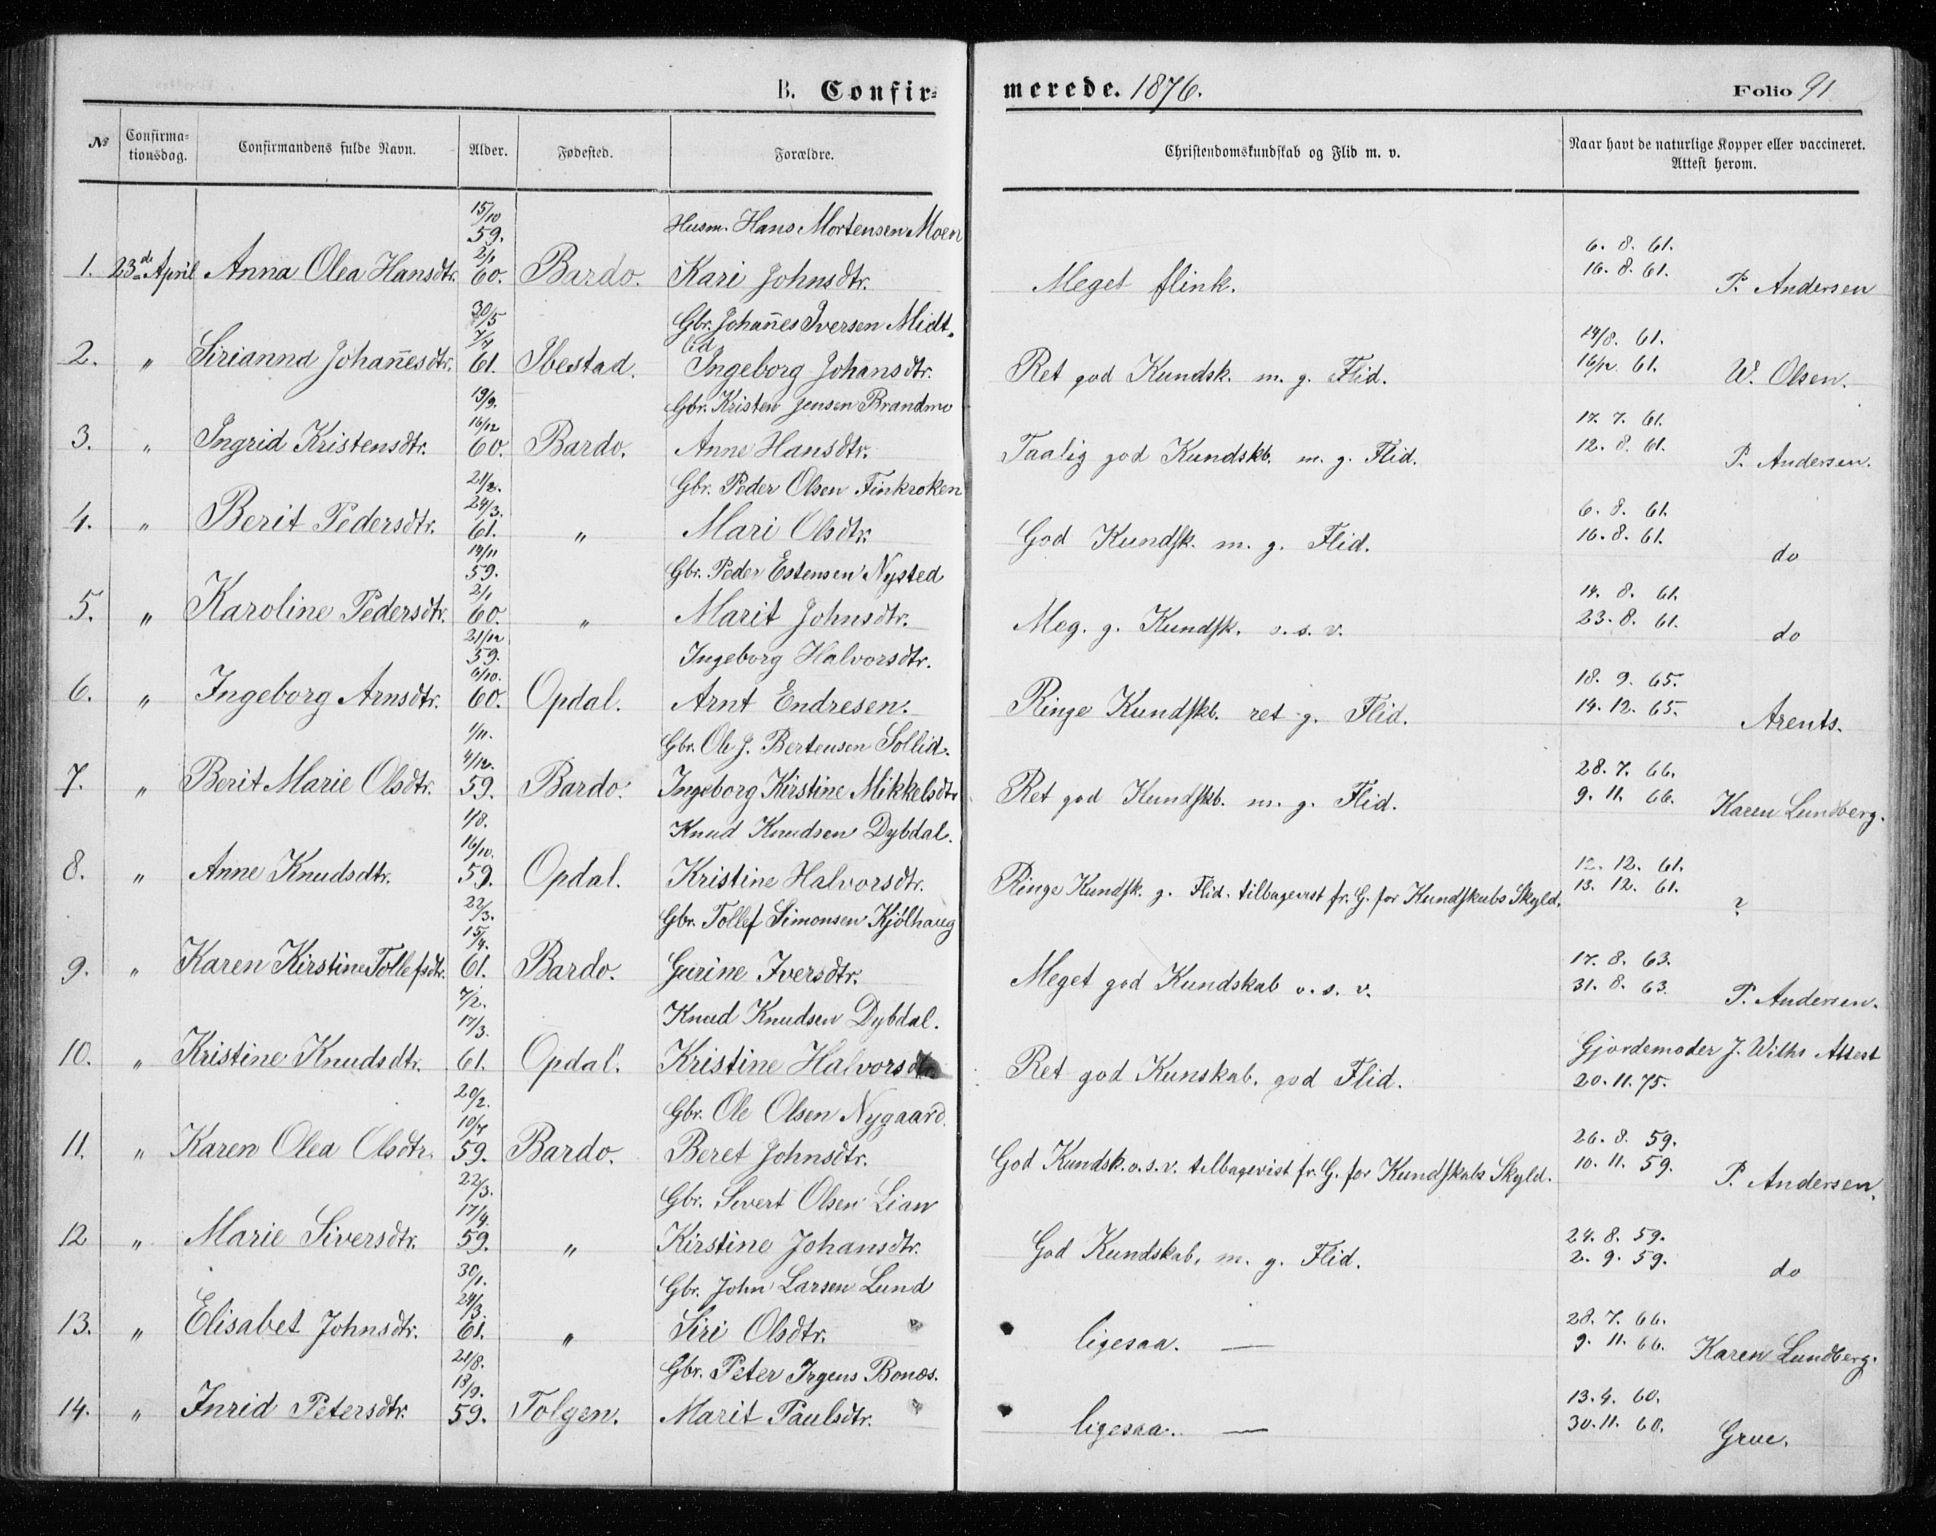 B. Confirmerede. 1876. Folio 91
№ Confirmationsdag. Confirmandens fulde Navn. Alder. Fødested. Forældre. Christendomskundskab og Flid m. v. Naar havt de naturlige Kopper eller vaccineret. Attest herom.
15/10 59. Husm. Hans Mortensen Moen 6. 8. 61.
1. 23de April Anna Olea Hansdtr. 2/1 60. Bardo. Kari Johnsdtr. Meget flink. 16. 8. 61. P. Andersen
30/5 Gbr. Johan̄es Iversen Midtlid 14/8. 61.
2. " Sirianna Johan̄esdtr. 7/7 61. Ibestad. Ingeborg Johansdtr. Ret god Kundsk. m. g. Flid. 16/12 61. W. Olsen.
13/9. Gbr. Kristen Jensen Brandmo 17. 7. 61.
3. " Ingrid Kristensdtr. 16/12 60. Bardo. Anne Hansdtr. Taalig god Kundskb. m. g. Flid. 12. 8. 61. P. Andersen.
21/2. Gbr. Peder Olsen Finkroken 6. 8. 61.
4. " Berit Pedersdtr. 24/3. 61. " Mari Olsdtr. God Kundsk. m. g. Flid. 16. 8. 61. do
14/11 59. Gbr. Peder Estensen Nysted 14. 8. 61.
5. " Karoline Pedersdtr. 2/1 60. " Marit Johnsdtr. Meg. g. Kundsk. o. s. v. 23. 8. 61. do
21/12 59. Ingeborg Halvorsdtr. 18. 9. 65.
6. " Ingeborg Arnsdtr. 6/10. 60. Opdal. Arnt Endresen. Ringe Kundskb. ret g. Flid. 14. 12. 65. Arents.
1/11. Gbr. Ole J. Bertensen Sollid. 28. 7. 66.
7. " Berit Marie Olsdtr. 4/12. 59. Bardo. Ingeborg Kirstine Mikkelsdtr Ret god Kundskb. m. g. Flid. 9. 11. 66. Karen Lundberg.
1/8. Knud Knudsen Dybdal. 12. 12. 61.
8. " Anne Knudsdtr. 16/10. 59. Opdal. Kristine Halvorsdtr. Ringe Kundsk. g. Flid. tilbagevist fr. G. for Kundskabs Skyld. 13. 12. 61. ?
22/3. Gbr. Tollef Simonsen Kjølhaug 17. 8. 63.
9. " Karen Kirstine Tollefsdtr. 15/4. 61. Bardo. Gurine Iversdtr. Meget god Kundskab o. s. v. 31. 8. 63. P. Andersen.
7/2. Knud Knudsen Dybdal. Gjordemoder J. Withs Attest
10. " Kristine Knudsdtr. 17/3. 61. Opdal. Kristine Halvorsdtr Ret god Kunskab. god Flid. 20. 11. 75.
20/2. Gbr. Ole Olsen Nygaard. 26. 8. 59.
11. " Karen Olea Olsdtr. 10/4 59. Bardo. Beret Johnsdtr. God Kundsk. o. s. v. tilbagevist fr. G. for Kundskabs Skyld. 10. 11. 59. P. Andersen.
22/3. Gbr. Sivert Olsen Lian 24. 8. 59.
12 " Marie Siversdtr. 17/4. 59. " Kirstine Johansdtr. God Kundskab. m. g. Flid. 2. 9. 59. do
30/1. Gbr. John Larsen Lund 28. 7. 66.
13. " Elisabet Johnsdtr. 24/3. 61. " Siri Olsdtr. ligesaa. — 9. 11. 66. Karen Lundberg.
21/8. Gbr. Peter Irgens Bonæs. 13. 4. 60.
14. " Inrid Petersdtr. 13/9. 59. Tolgen. Marit Paulsdtr. ligesaa. — 30. 11. 60. Grue.